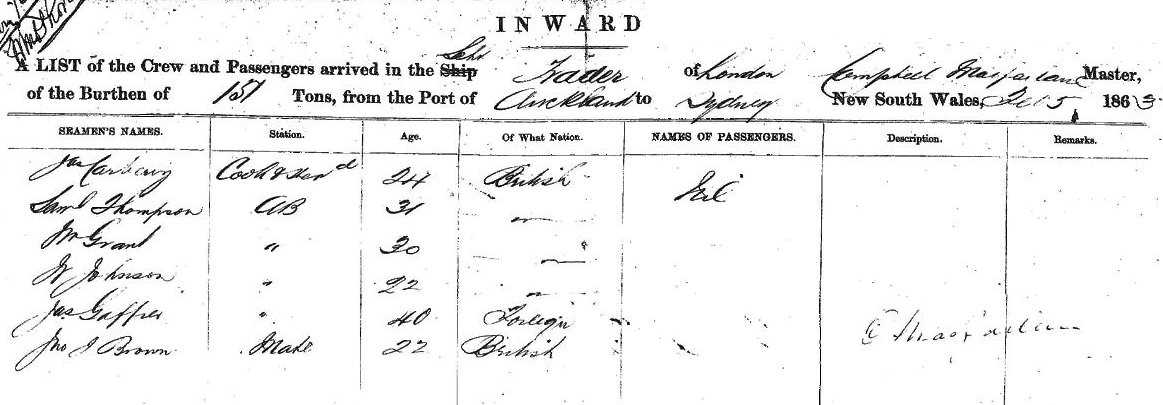 INWARD
A LIST of the Crew and Passengers arrived in the Ship Schr Trader of London Campbell Macfarlane Master,
of the Burthen of 151 Tons, from the Port of Auckland to Sydney New South Wales, Feb 5 1863
SEAMEN'S NAMES. Station. Age. Of What Nation. NAMES OF PASSENGERS. Description. Remarks.
Jas Cook & Stewd 24 British Nil
Saml Thompson AB 31 "
Wm Grant " 30 "
W Johnson " 22 "
Jas " 40 Foreign
Jno J Brown Mate 22 British C Macfarlane